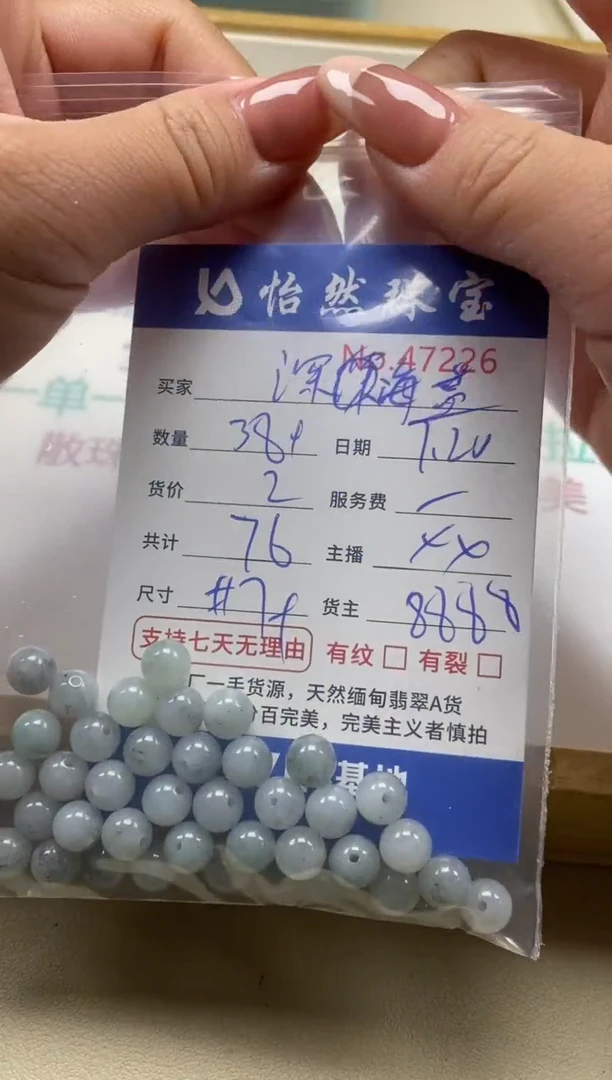 怡然珠宝
No.47226
买家 深深海蓝
数量 38+ 日期 7.20
货价 2 服务费
共计 76 主播 xx
尺寸 #7+ 货主 8888
支持七天无理由 有纹 有裂
厂一手货源，天然缅甸翡翠A货
百完美，完美主义者慎拍
基地
单一
散珠
美